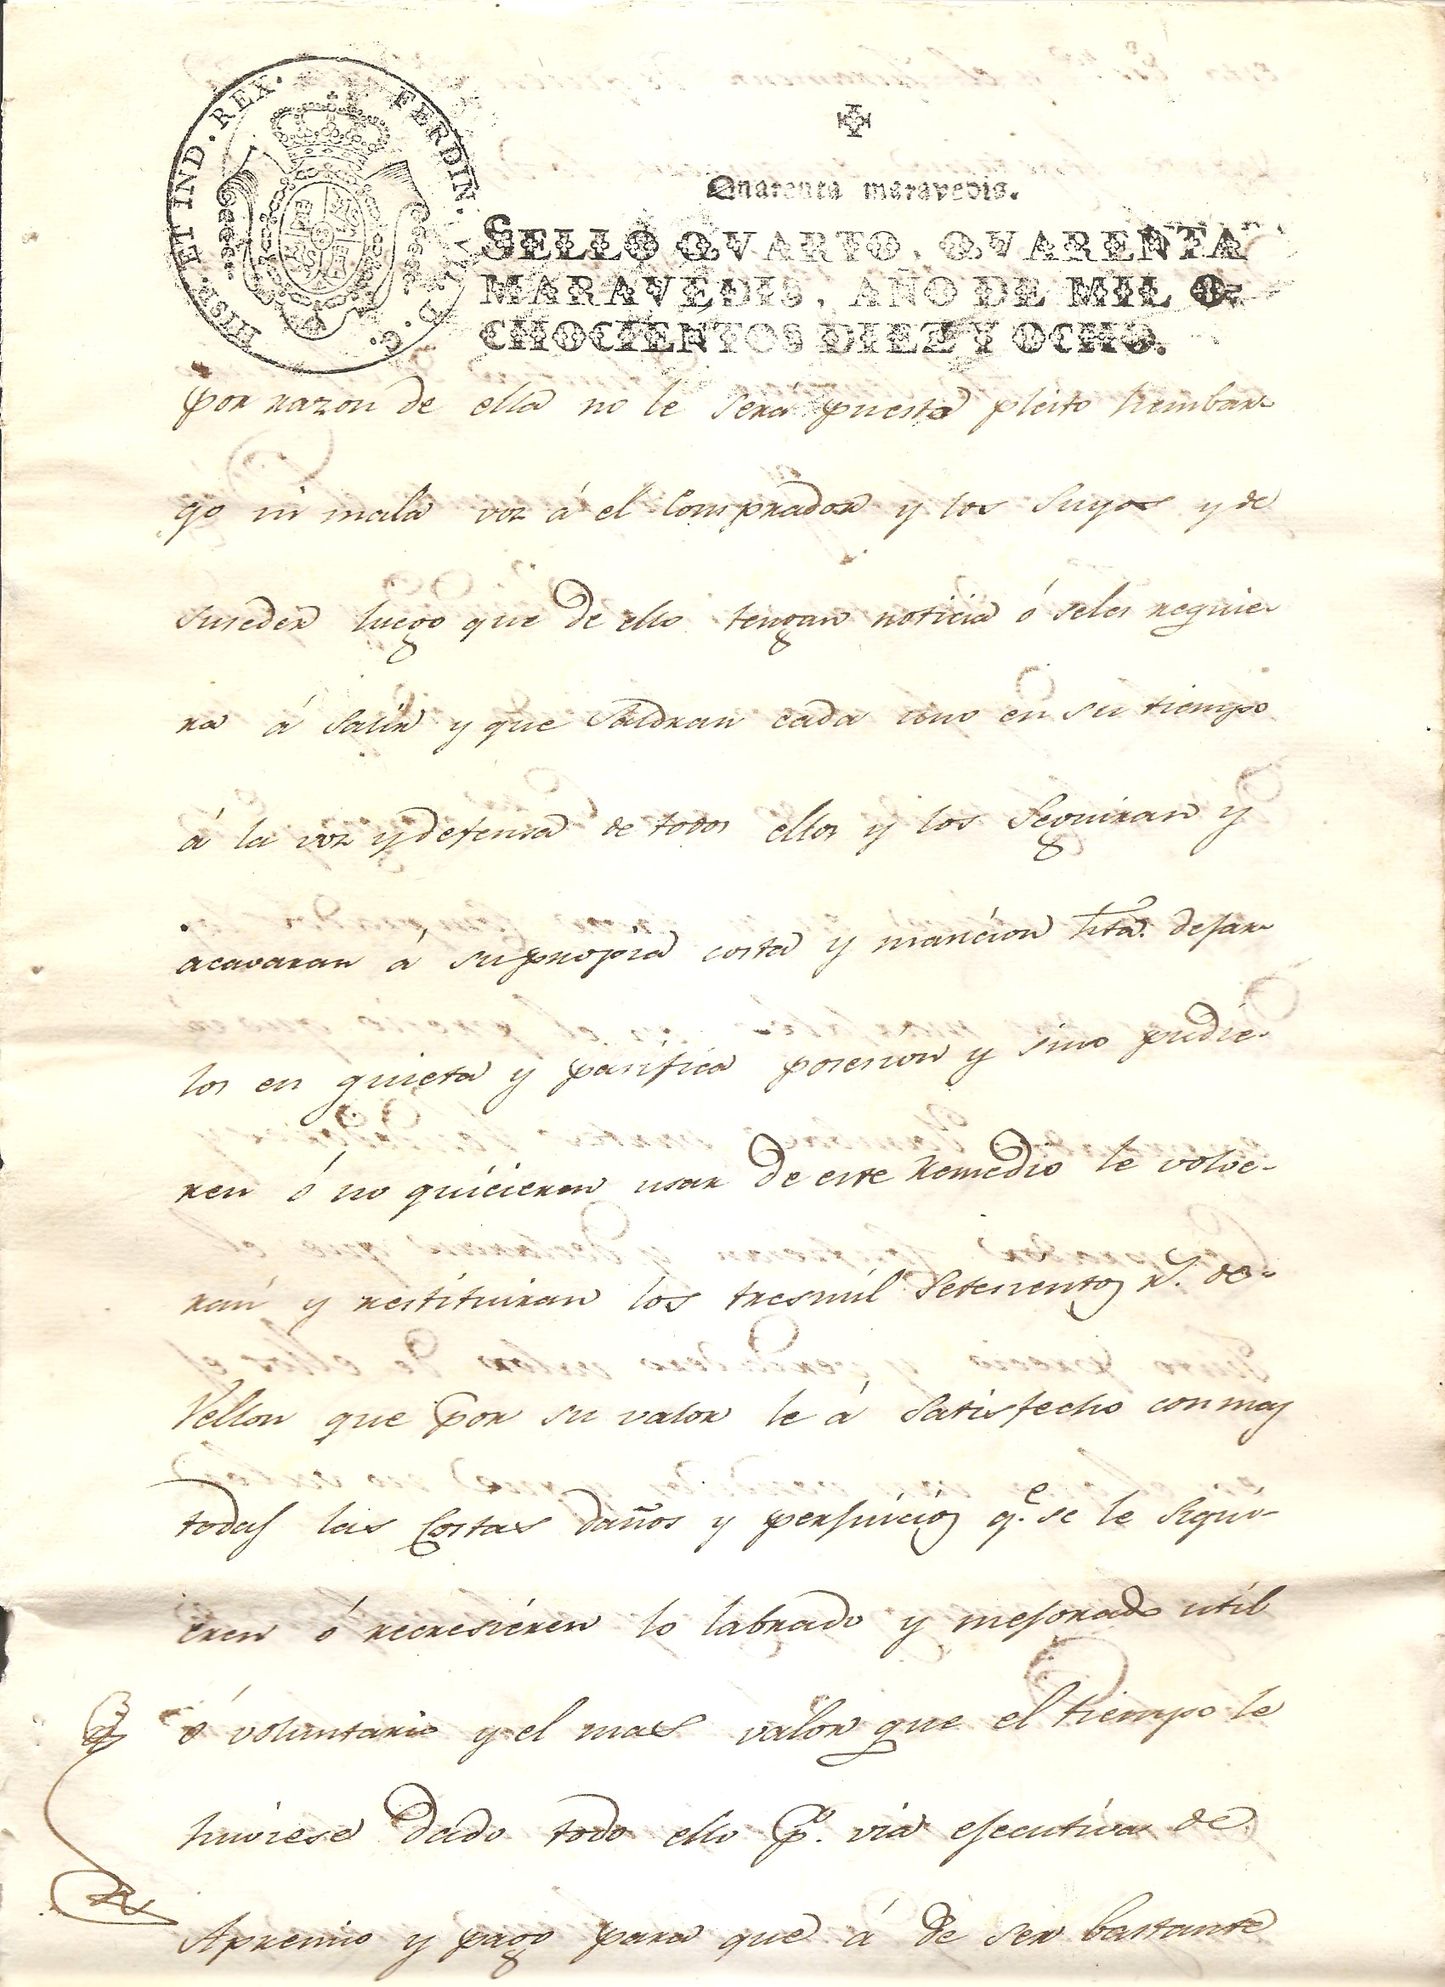 HISP. ET IND. REX. FERDIN. VII. D. G.
Quarenta maravedis.
SELLO QVARTO, QVARENTA
MARAVEDIS, AÑO DE MIL O-
CHOCIENTOS DIEZ Y OCHO.
por razon de ella no le será puesto pleito ni embar-
go ni mala voz á el Comprador y los Suyos y de
suceder luego que de ello tengan noticia ó seles requie-
ra á Salir y que Saldran cada uno en su tiempo
á la voz y defensa de todos ellos y los Seguiran y
acavaran á su propia costa y mancion hta. dejar-
los en quieta y pacifica posesion y sino pudie-
ren ó no quicieren usar de este Remedio le volve-
ran y restituiran los tresmil Setesientos rs. de
Vellon que por su valor le á Satisfecho con mas
todas las Costas daños y perjuicios qe. se le Sigui-
eren ó recresieren lo labrado y mejorado util
ó voluntario y el mas valor que el tiempo le
huviese dado todo ello pr. via ejecutiva de
Apremio y pago para que á de ser bastante